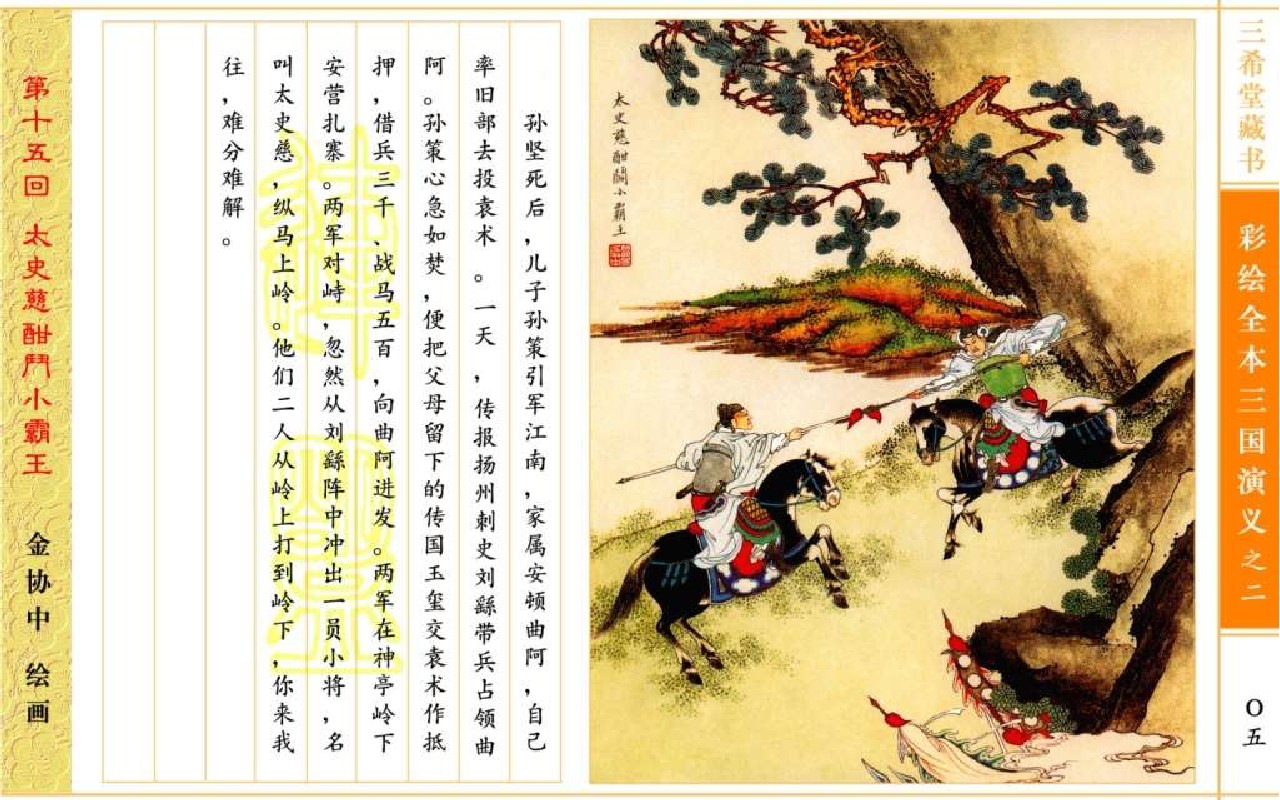 三希堂藏书
彩绘全本三国演义之二
〇五
太史慈酣鬭小霸王
孙坚死后，儿子孙策引军江南，家属安顿曲阿，自己
率旧部去投袁术。一天，传报扬州刺史刘繇带兵占领曲
阿。孙策心急如焚，便把父母留下的传国玉玺交袁术作抵
押，借兵三千、战马五百，向曲阿进发。两军在神亭岭下
安营扎寨。两军对峙，忽然从刘繇阵中冲出一员小将，名
叫太史慈，纵马上岭。他们二人从岭上打到岭下，你来我
往，难分难解。
第十五回 太史慈酣鬥小霸王
金协中 绘画